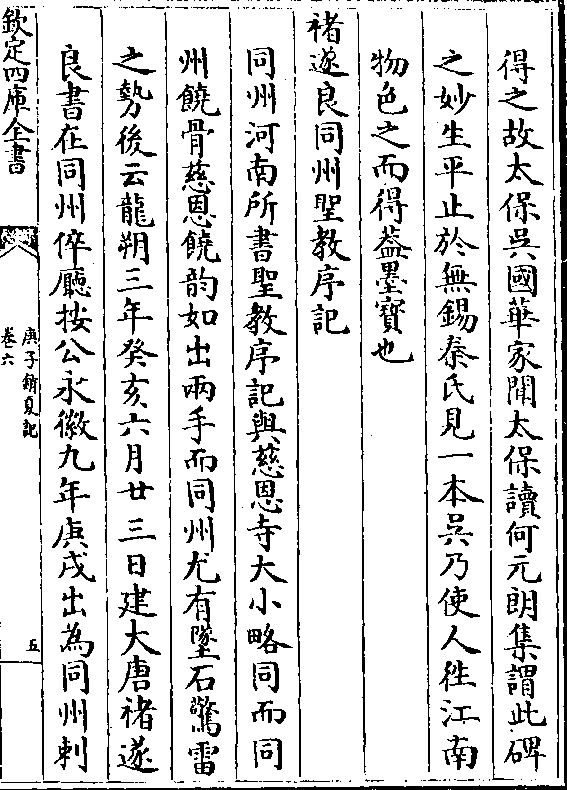 得之故太保吳國華家聞太保讀何元朗集謂此碑
之妙生平止於無錫秦氏見一本吳乃使人徃江南
物色之而得葢墨寳也
褚遂良同州聖教序記
同州河南所書聖教序記與慈恩寺大小略同而同
州饒骨慈恩饒韵如出兩手而同州尤有墜石驚雷
之勢後云龍朔三年癸亥六月廿三日建大唐褚遂
良書在同州倅廳按公永徽九年庚戌出為同州刺
欽定四庫全書
庚子銷夏記
卷六
五